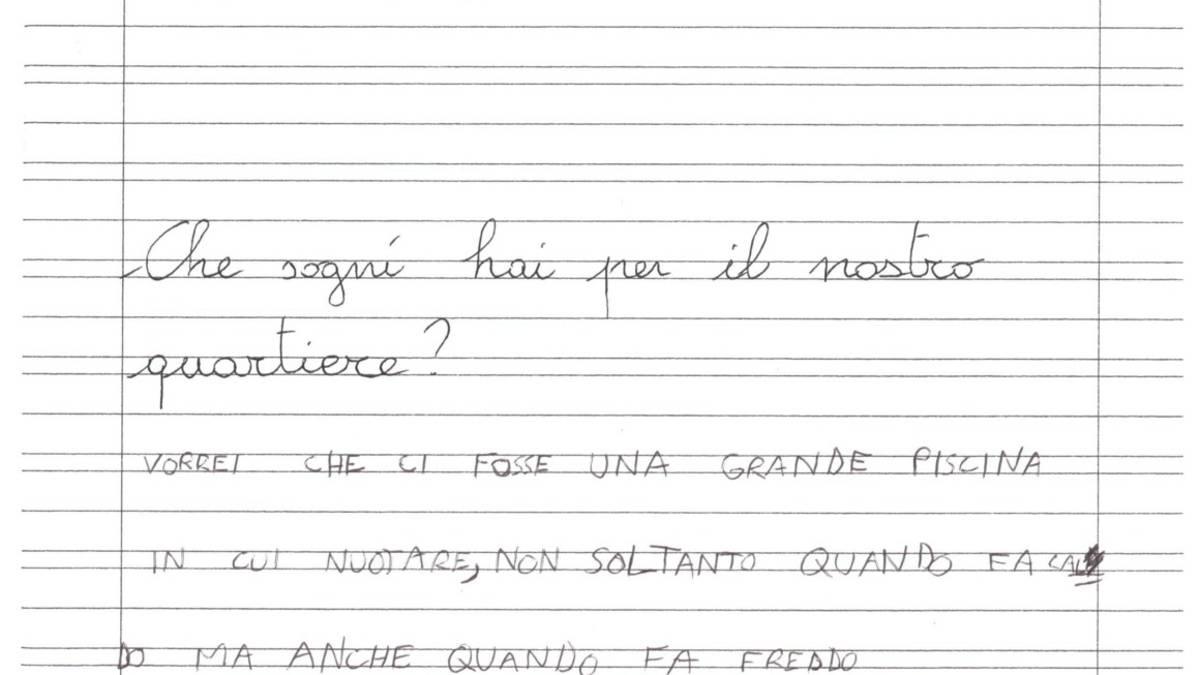 Che sogni hai per il nostro
quartiere?
VORREI CHE CI FOSSE UNA GRANDE PISCINA
IN CUI NUOTARE, NON SOLTANTO QUANDO FA CAL
DO MA ANCHE QUANDO FA FREDDO